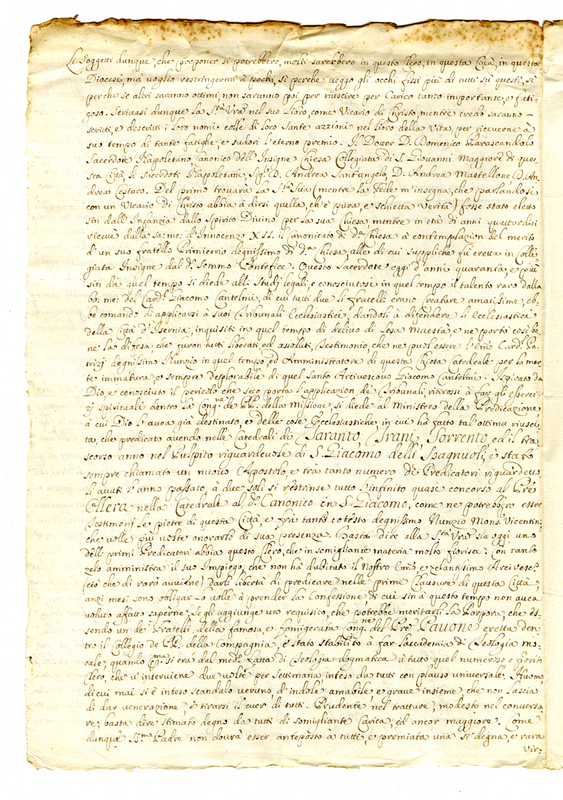 Li Soggetti dunque, che proponer si potrebbero, molti sarebbero in questo Clero, in questa Città, in questa
Diocesi, ma voglio restringermi à pochi, si perche veggo gli occhi fissi più di tutti sù questi, si
perche se altri saranno ottimi, non saranno poi per riuscire per Carico tanto importante, e fati-
coso. Servasi dunque la Stà Vrã nel suo Libro come Vicario di Christo, mentre credo saranno
scritti, e descritti i loro nomi colle di loro Sante azzioni nel libro della Vita, per riceverne à
suo tempo di tante fatighe, e sudori l'eterno premio. Il Dover D. Domenico
Sacerdote Napoletano, Canonico dell'Insigne Chiesa Collegiata di S. Giovanni Maggiore di que-
sta Città, li Sacerdoti Napoletani, D. Andrea Sant'angelo, D. Andrea Mastellone, D. An-
drea Cestaro. Del primo trovarà la Stà Sua (mentre la Fede m'insegna, che parlandosi
con un Vicario di Christo abbia à dirsi quella, ch'è pura, e schietta Verità) forse stato eletto
sin dall'Infanzia dallo Spirito Divino per la sua Chiesa, mentre in età di anni quattordici
riceve dalla sa: me: d'Innocenzo XII. il Canonicato di dª Chiesa à contemplazion del merito
d'un suo fratello Primicerio degnissimo di dª Chiesa, alle di cui suppliche fù eretta in Colle-
giata Insigne dal do Sommo Pontefice. Questo Sacerdote oggi d'anni quaranta, e più
sin dà quel tempo si diede alli Studj legali, e conosciutosi in quel tempo il talento raro dalla
bo: me: del Cardl Giacomo Cantelmi, di cui tutti due li Fratelli erano creature amatissime, eb-
be comando di applicarsi à suoi Tribunali Ecclesiastici, dandoli à difendere li Ecclesiastici
della Città d'Isernia, inquisiti in quel tempo di delitto di lesa Maestà, e ne portò così be-
ne la difesa che furon tutti liberati, ed assoluti, testimonio, che ne può essere l'Emo Card. Pa-
trizj degnissimo Nunzio in quel tempo, ed Amministratore di questa Chiesa Catedrale per la mor-
te immatura, e sempre deplorabile di quel Santo Arcivescovo Giacomo Cantelmi. Aspirato da
Dio, e conosciuto il pericolo che seco porta l'applicazion de Tribunali, ritirossi à far gli eserci-
zj spirituali dentro la Congne de PP. della Missione, si diede al Ministero della Predicazione,
à cui Dio l'aveva già destinato, e delle cose Ecclesiastiche, in cui hà fatto tal ottima riusci-
ta, che predicato avendo nelle Catedrali di Taranto, Trani, Sorrento, ed il tra-
scorso anno nel Pulpito riguardevole di S. Giacomo delli Spagnuoli, è stato
sempre chiamato un nuovo Apostolo, e trà tanto numero de Predicatori riguardevo-
li avuti l'anno passato, à due soli si restrinse tutto l'infinito quasi concorso, al Pre
Ellera nella Catedrale, al do Canonico in S. Giacomo, come ne potrebbero esser
Testimonj le pietre di questa Città, e frà tanti cotesto degnissimo Nunzio Monsr Vicentini
che volle più volte onorarlo di sua presenza. Basta dire alla Stà Vrã sia oggi un
delli primi Predicatori abbia questo Clero, che in simiglianti materia molto fiorisce: con tanto
zelo amministra il suo Impiego, che non hà dubitato il Nostro Emo, e zelantissimo Arcivesco
(ciò che di raro avviene) darli libertà di predicare nelle prime Clausure di questa Città,
anzi mesi sono obligar lo volle à prender la Confessione, di cui sin à questo tempo non aveva
voluto affatto saperne. Se gli aggiunge un requisito, che potrebbe meritarli la Porpora, che es-
sendo un de Fratelli della famosa, e fomigerata Congne del Pre Pavone eretta den-
tro il Collegio de PP. della Compagnia, è stato stabilito à far l'accademia di Teologia mo-
rale, quando pma si era dal medmo fatta di Teologia dogmatica à tutto quel numeroso, e fiorito
Clero, che v'interviene due volte per Settimana, inteso da tutti con plauso universale. Huomo
di cui mai si è inteso scandalo veruno, d'indole amabile, e grave insieme, che non lascia
di dar venerazione, è tirarsi il cuor di tutti. Prudente nel trattare, modesto nel conversa-
re, basta dire stimato degno da tutti di somigliante Carica, ed ancor maggiore. Come
dunque Bmo Padre non dovrà esser anteposto à tutti, e premiata una sì degna, e rara
Vir-